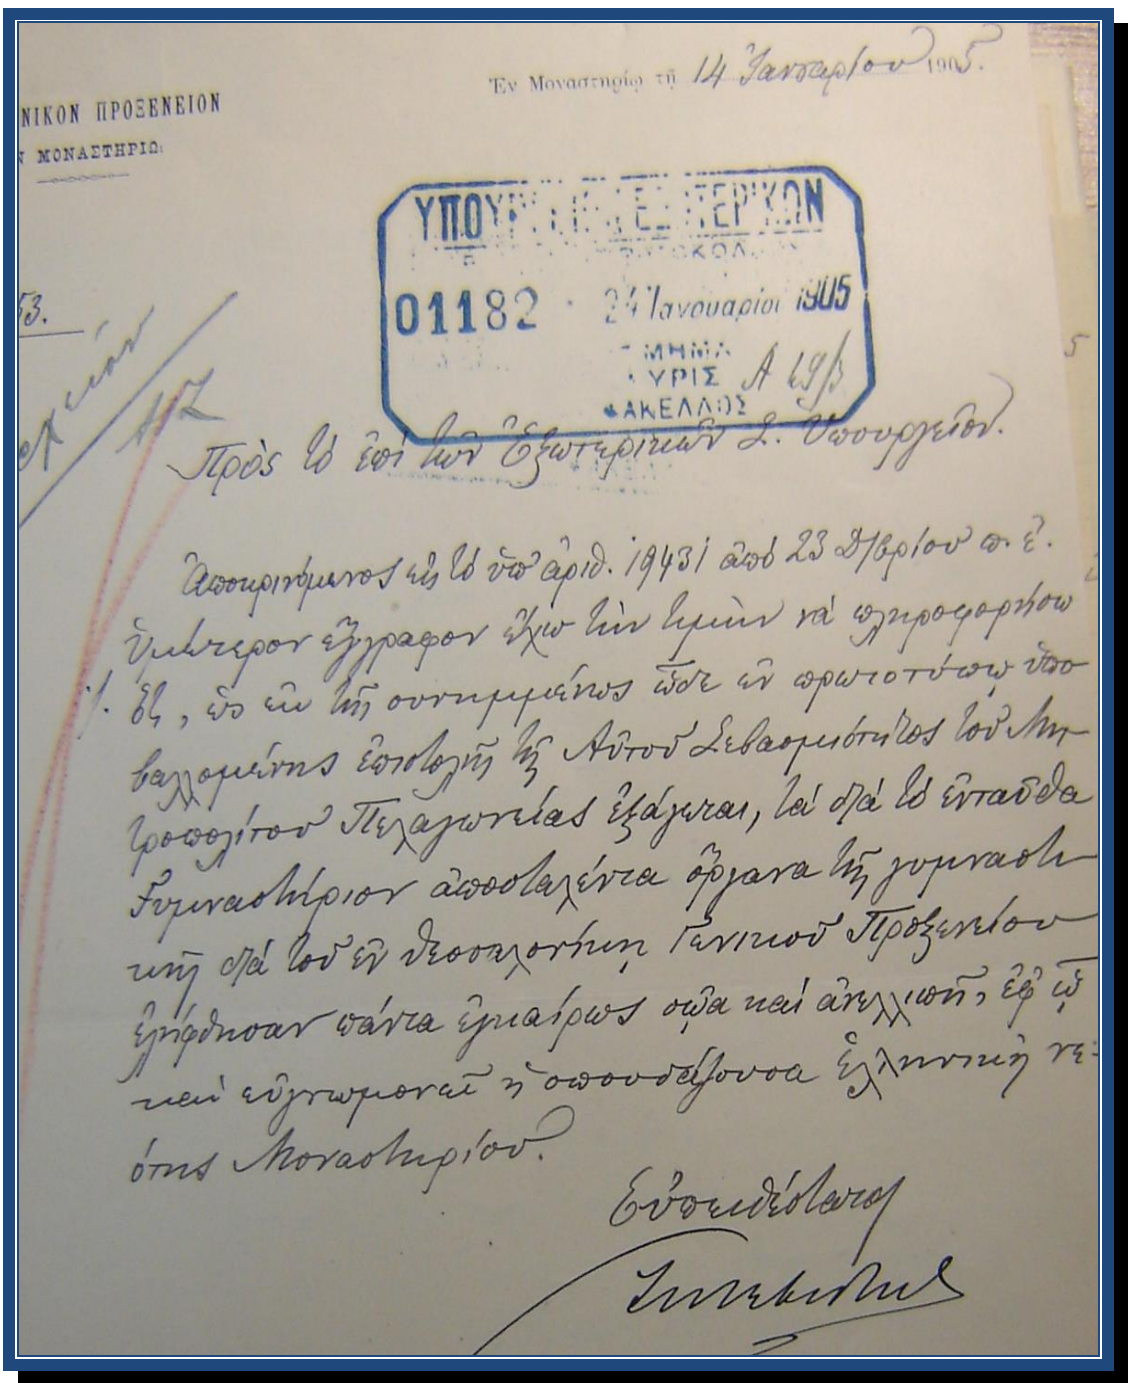 Ἐν Μοναστηρίῳ τῇ 14 Ἰανουαρίου 1905.
ΝΙΚΟΝ ΠΡΟΞΕΝΕΙΟΝ
ΜΟΝΑΣΤΗΡΙΩι
ΥΠΟΥ ΕΞ ΤΕΡΙΚΩΝ
01182 24 Ἰανουαρίου 1905
53.
ΤΜΗΜΑ
Α 49/3
ΦΑΚΕΛΛΟΣ
Πρὸς τὸ ἐπὶ τῶν Ἐξωτερικῶν Σ. Ὑπουργεῖον.
Ἀποκρινόμενος εἰς τὸ ὑπ' ἀριθ. 19431 ἀπὸ 23 Δ/βρίου π. ἔ.
ὑμέτερον ἔγγραφον ἔχω τὴν τιμὴν νὰ πληροφορήσω
·/. ὅτι, ὡς ἐκ τῆς συνημμένως ὧδε ἐν πρωτοτύπῳ ὑπο
βαλλομένης ἐπιστολῆς τῆς Αὐτοῦ Σεβασμιότητος τοῦ Μη-
τροπολίτου Πελαγωνείας ἐξάγεται, τὰ διὰ τὸ ἐνταῦθα
Γυμναστήριον ἀποσταλέντα ὄργανα τῆς γυμναστι
κῆς διὰ τοῦ ἐν Θεσσαλονίκῃ Γενικοῦ Προξενείου
ἐλήφθησαν πάντα ἐγκαίρως σῶα καὶ ἀνελλιπῆ, ἐφ' ᾧ
καὶ εὐγνωμονεῖ ἡ σπουδάζουσα ἑλληνικὴ νε-
ότης Μοναστηρίου.
Εὐπειθέστατος